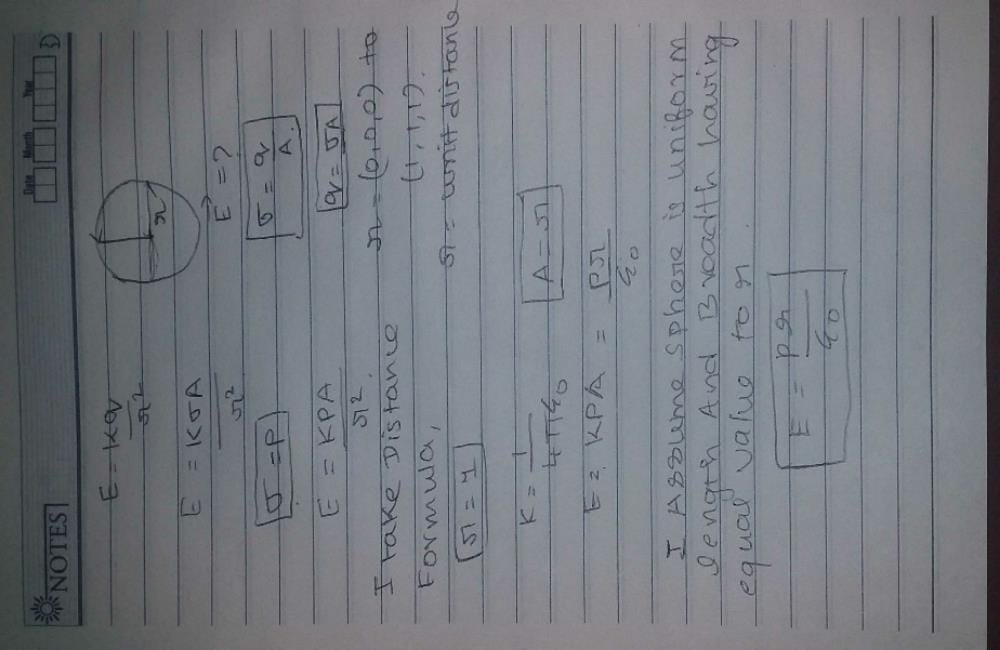 NOTES
Date Month Year
E = Kq/r²
r
E = KσA/r²
E = ?
σ = P
σ = q/A.
E = KPA/r²
q = σA
I take Distance r = (0,0,0) to
Formula, (1,1,1).
r = 1 r = unit distance
K = 1/4πε0 A = r
E = KPA = Pr/ε0
I Assume sphere is uniform
length And Breadth having
equal value to r.
E = Pr/ε0